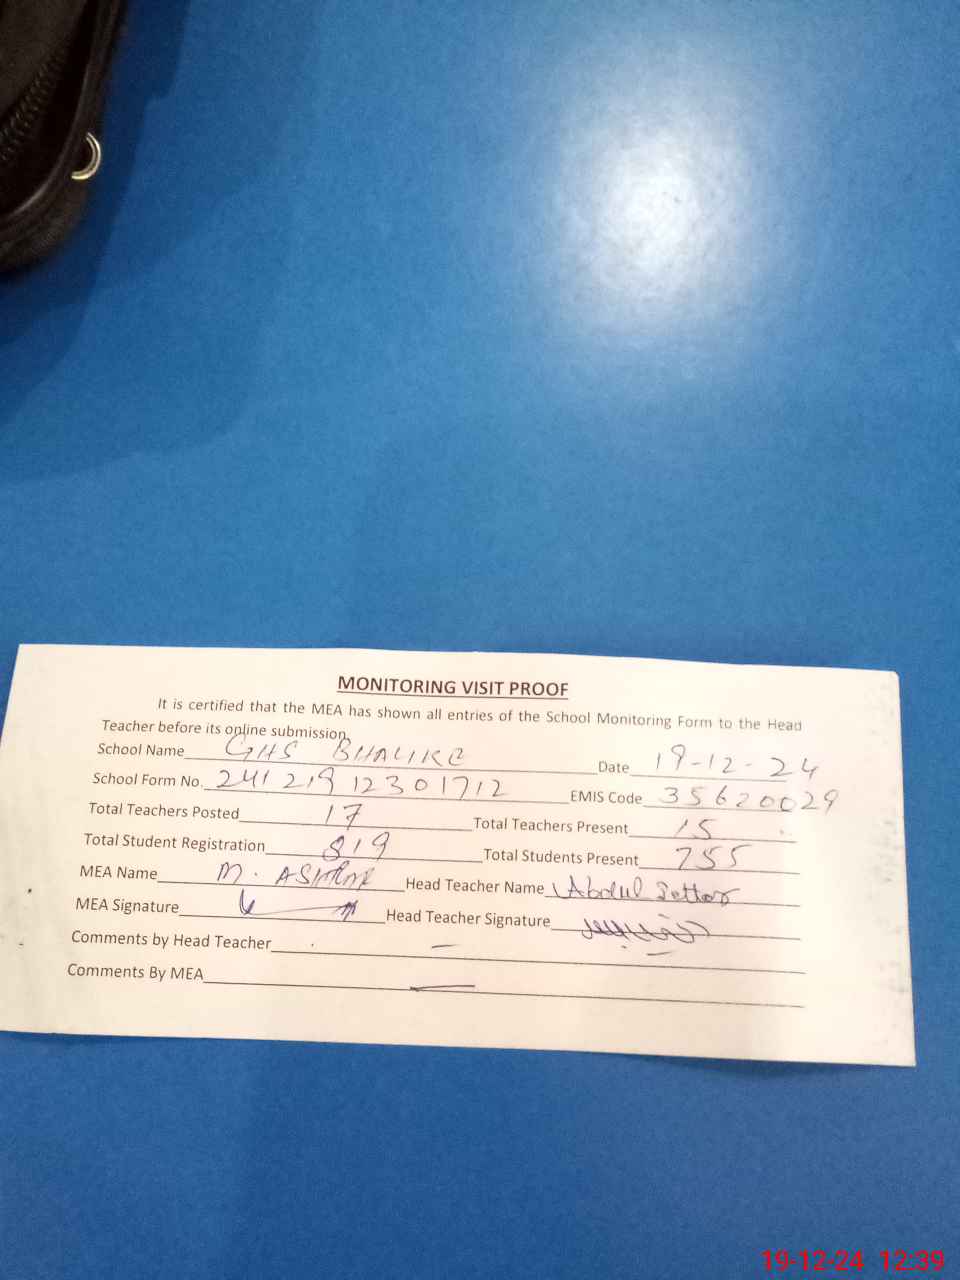 MONITORING VISIT PROOF
It is certified that the MEA has shown all entries of the School Monitoring Form to the Head
Teacher before its online submission.
School Name GHS BHALIKE Date 19-12-24
School Form No. 241 219 12301712 EMIS Code 35620029
Total Teachers Posted 17 Total Teachers Present 15
Total Student Registration 819 Total Students Present 755
MEA Name M. Head Teacher Name Abdul Sattar
MEA Signature Head Teacher Signature
Comments by Head Teacher —
Comments By MEA —
19-12-24 12:39